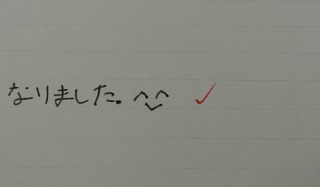 なりました。^^